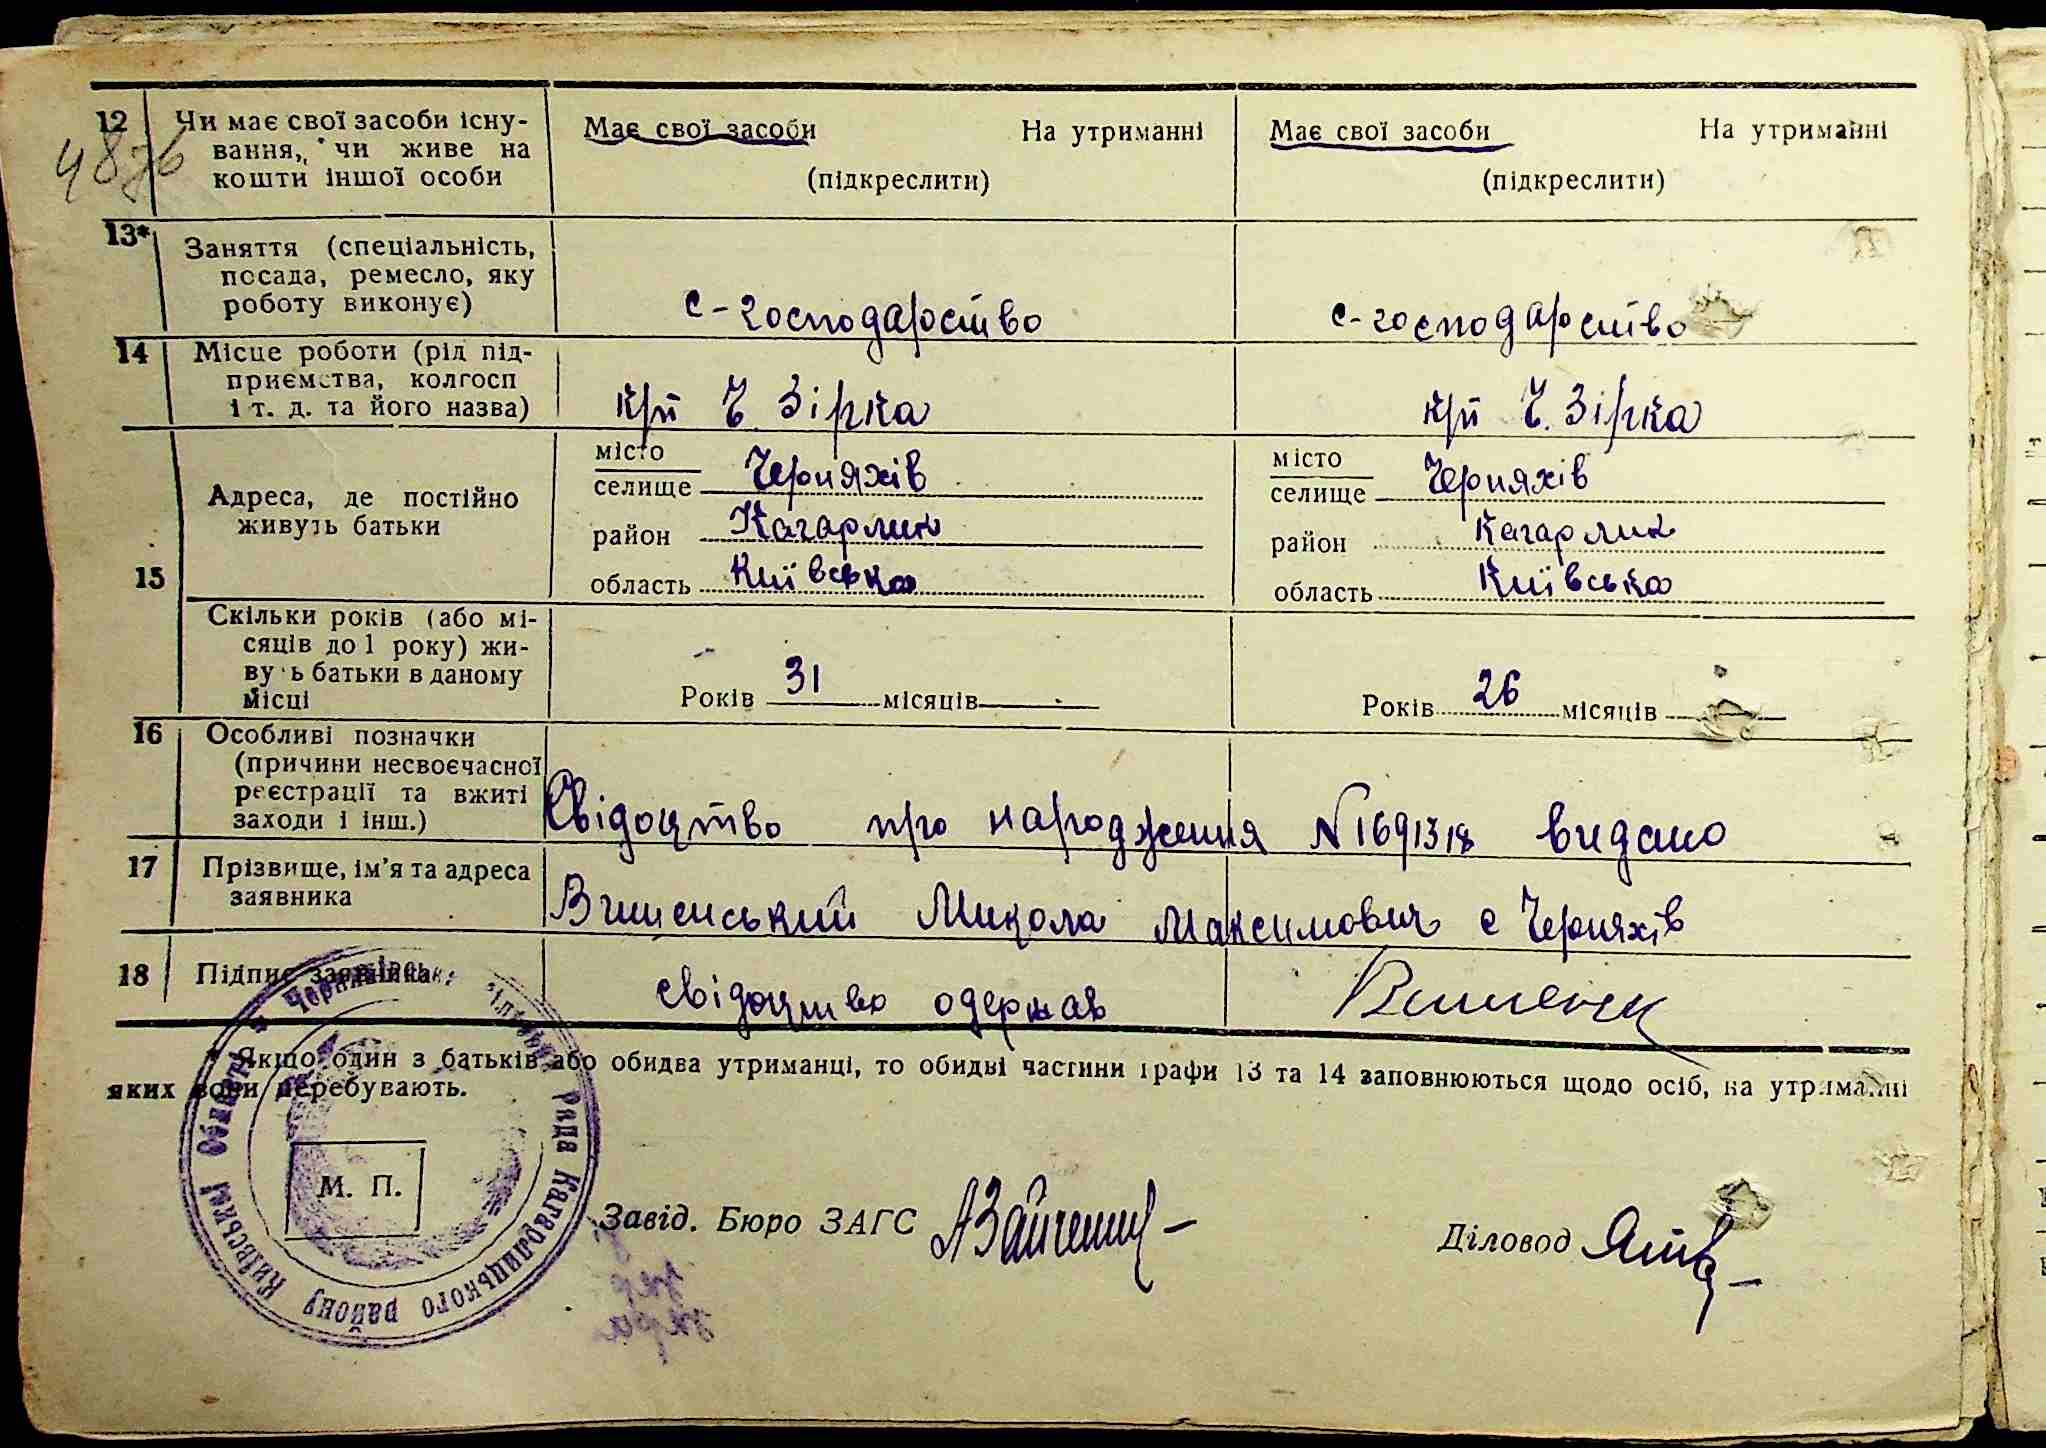 48зв
12 Чи має свої засоби існу- Має свої засоби На утриманні Має свої засоби На утриманні
вання, чи живе на
кошти іншої особи (підкреслити) (підкреслити)
13* Заняття (спеціальність,
посада, ремесло, яку
роботу виконує) с-господарство с-господарство
14 Місце роботи (рід під-
приємства, колгосп
і т. д. та його назва) к/г Ч. Зірка к/г Ч. Зірка
15 Адреса, де постійно
живуть батьки
місто місто
селище Черняхів селище Черняхів
район Кагарлик район Кагарлик
область Київська область Київська
Скільки років (або мі-
сяців до 1 року) жи-
вуть батьки в даному
місці Років 31 місяців Років 26 місяців
16 Особливі позначки
(причини несвоєчасної
реєстрації та вжиті
заходи і інш.) Свідоцтво про народження N 1691318 видано
17 Прізвище, ім'я та адреса
заявника Вишенський Микола Максимович с Черняхів
18 Підпис заявника свідоцтво одержав
* Якщо один з батьків або обидва утриманці, то обидві частини графи 13 та 14 заповнюються щодо осіб, на утриманні
яких вони перебувають.
М. П.
Завід. Бюро ЗАГС АЗайченко Діловод
Черняхівська сільська Рада Кагарлицького району Київської Області